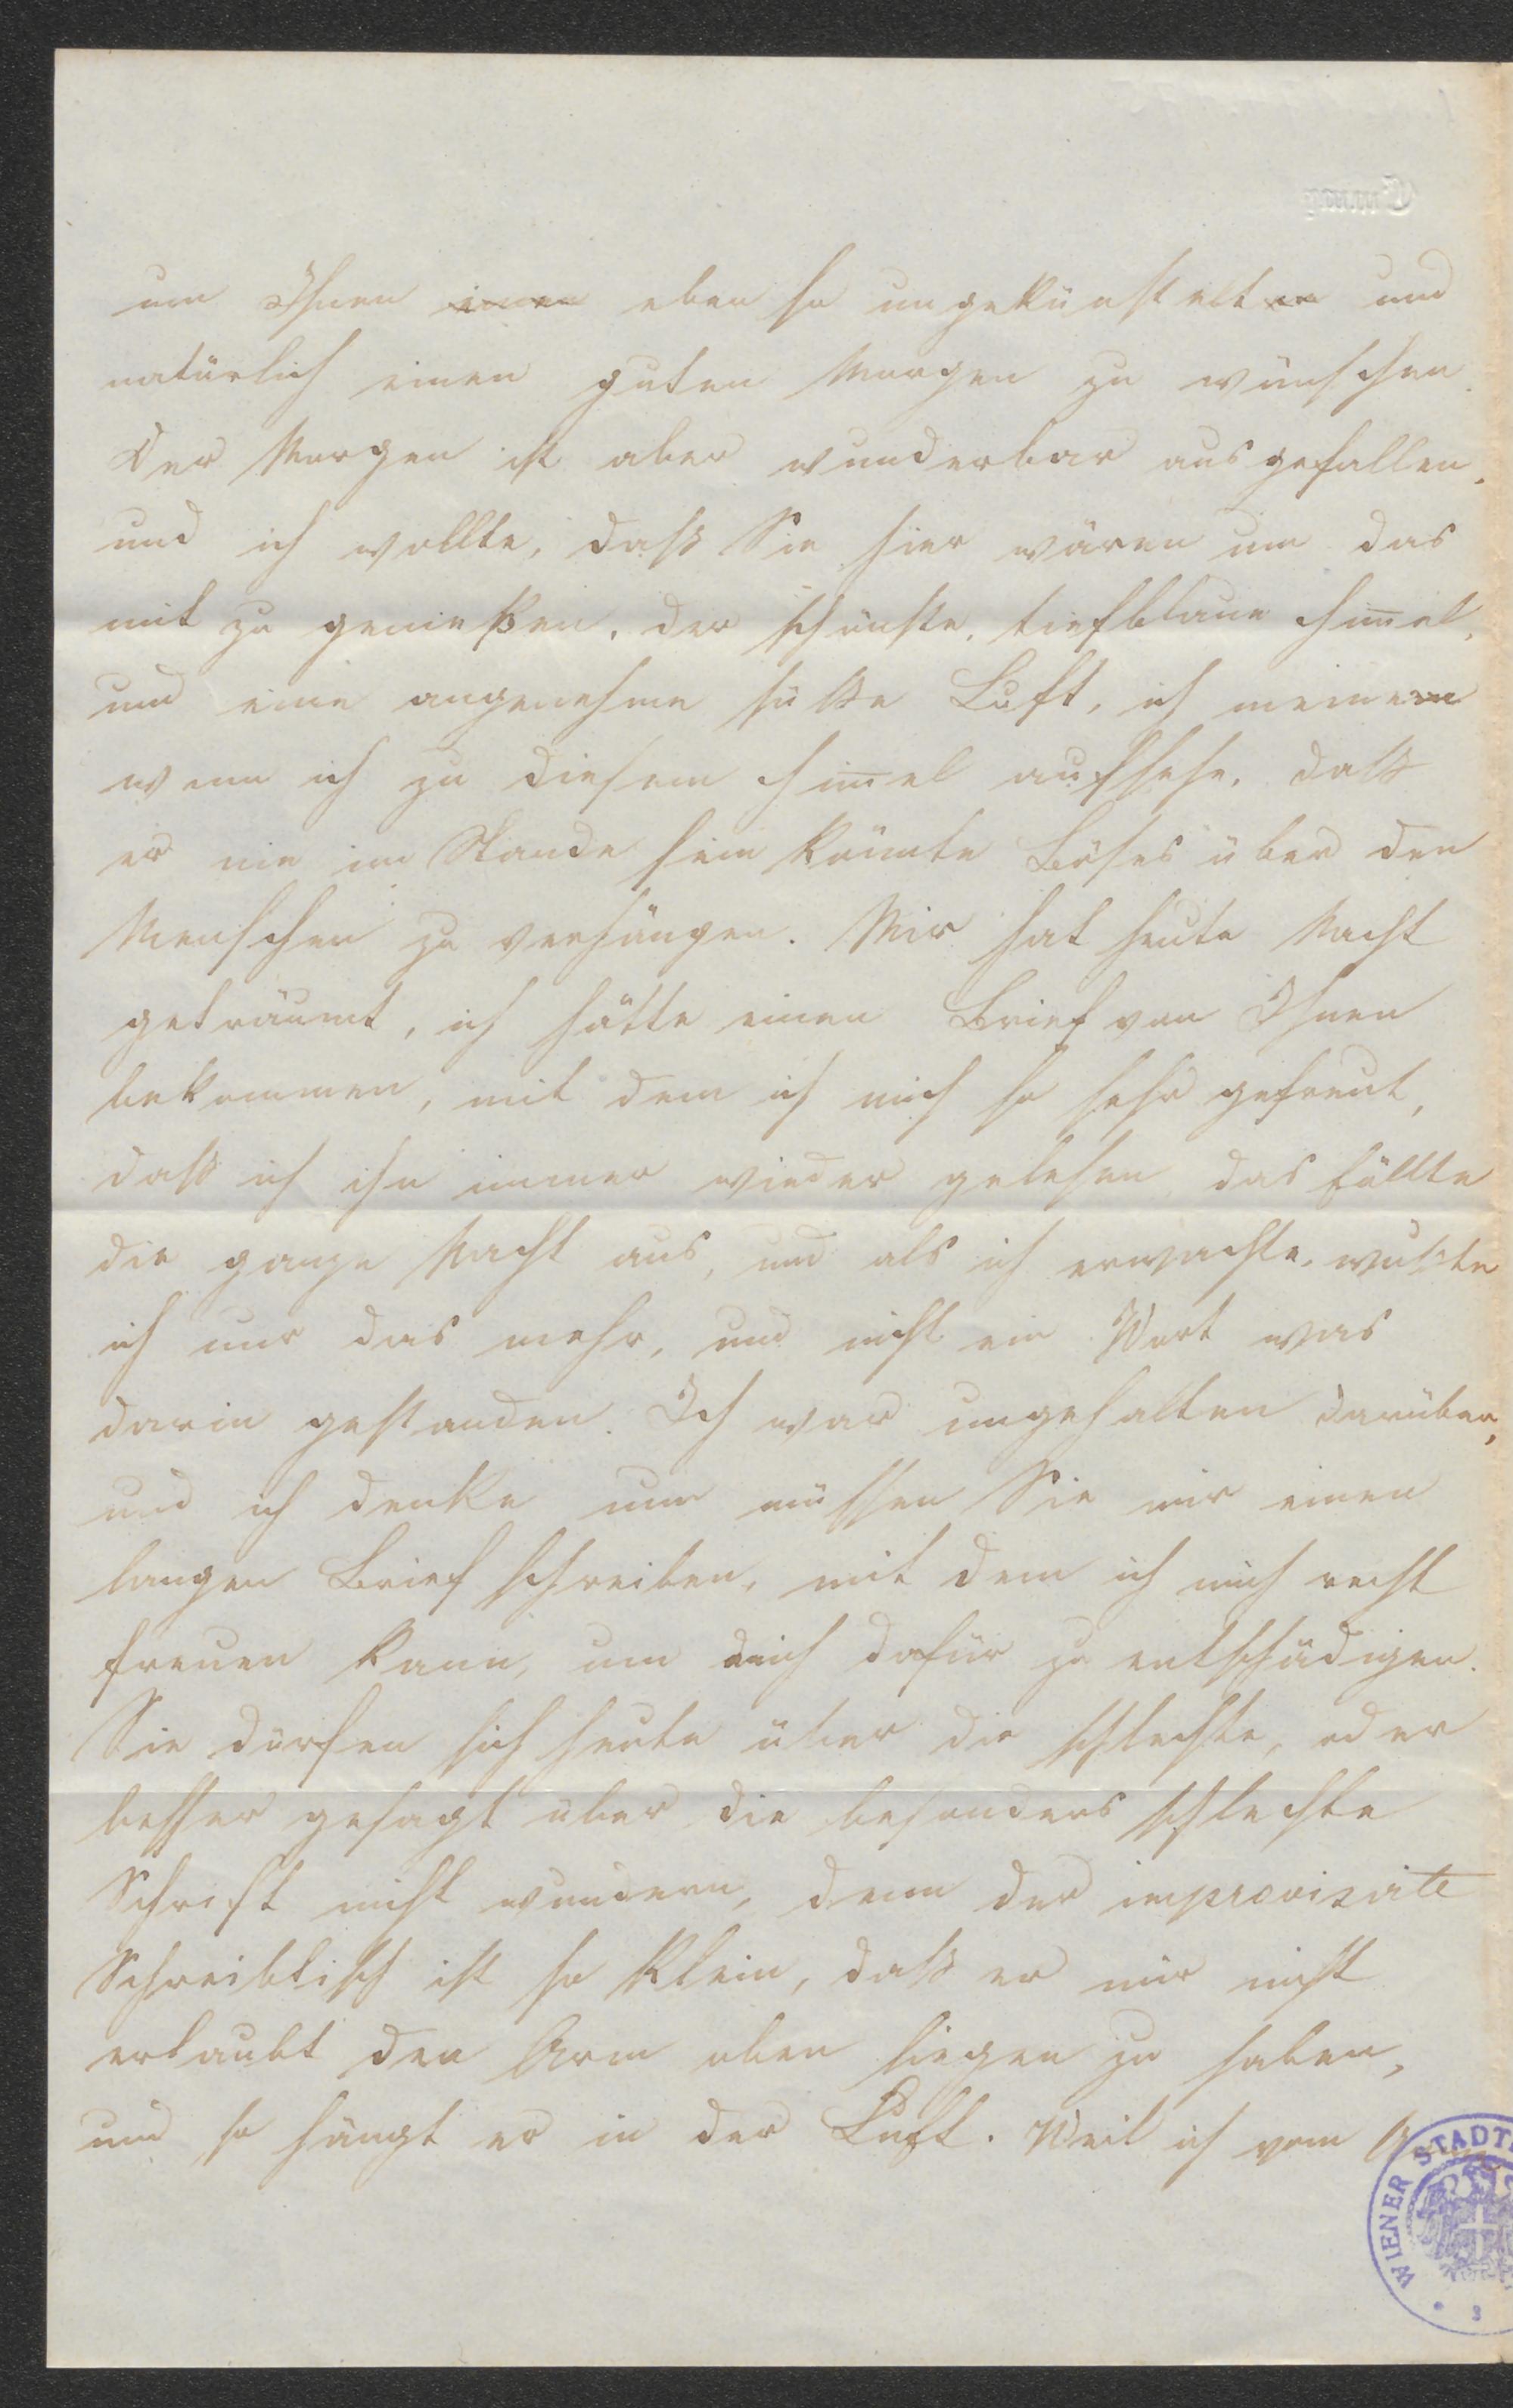 um Ihnen einen eben so ungekünstelten und
natürlich einen guten Morgen zu wünschen.
Der Morgen ist aber wunderbar ausgefallen,
und ich wollte, daß Sie hier wären um das
mit zu genießen, der schönste, tiefblaue Himel,
und eine angenehme süße Luft, ich meinen
wenn ich zu diesem Himel aufsehe, daß
er nie im Stande sein könnte Böses über den
Menschen zu verhängen. Mir hat heute Nacht
geträumt, ich hätte einen Brief von Ihnen
bekommen, mit dem ich mich so sehr gefreut,
daß ich ihn immer wieder gelesen das füllte
die ganze Nacht aus, und als ich erwachte, wußte
ich nur das mehr, und nicht ein Wort was
darin gestanden. Ich war ungehalten darüber,
und ich denke nun müssen Sie mir einen
langen Brief schreiben, mit dem ich mich recht
freuen kann, um mich dafür zu entschädigen.
Sie dürfen sich heute über die schlechte, oder
besser gesagt über die besonders schlechte
Schrift nicht wundern, denn der improvisirte
Schreibtisch ist so klein, daß er mir nicht
erlaubt den Arm oben liegen zu haben,
und so hängt er in der Luft. Weil ich vom
WIENER STADT